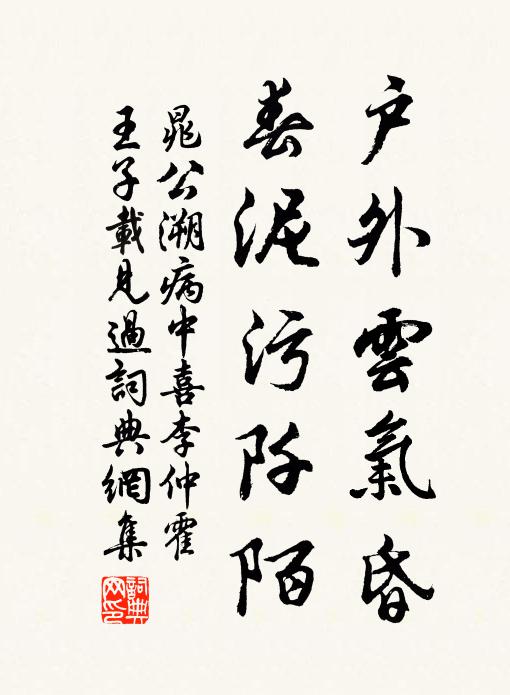 户外雲氣昏
春泥污阡陌
晁公溯病中喜李仲霍
王子載見過詞典網集
詞典网印